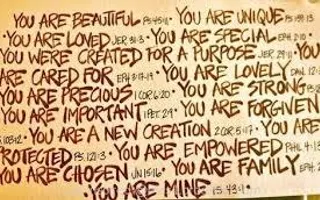 YOU ARE BEAUTIFUL PS 45:11 · YOU ARE UNIQUE PS 139:13
· YOU ARE LOVED JER 31:3 · YOU ARE SPECIAL EPH 2:10 ·
YOU WERE CREATED FOR A PURPOSE JER 29:11 · YOU
ARE CARED FOR EPH 3:17-19 · YOU ARE LOVELY DAN. 12:3
YOU ARE PRECIOUS 1 COR 6:20 · YOU ARE STRONG
YOU ARE IMPORTANT 1 PET. 2:9 · YOU ARE FORGIVEN
103:12 · YOU ARE A NEW CREATION 2 COR. 5:17 · YOU ARE
PROTECTED PS. 121:3 · YOU ARE EMPOWERED PHIL 4:13
YOU ARE CHOSEN JN 15:16 · YOU ARE FAMILY EPH. 2
· YOU ARE MINE IS 43:1 ·